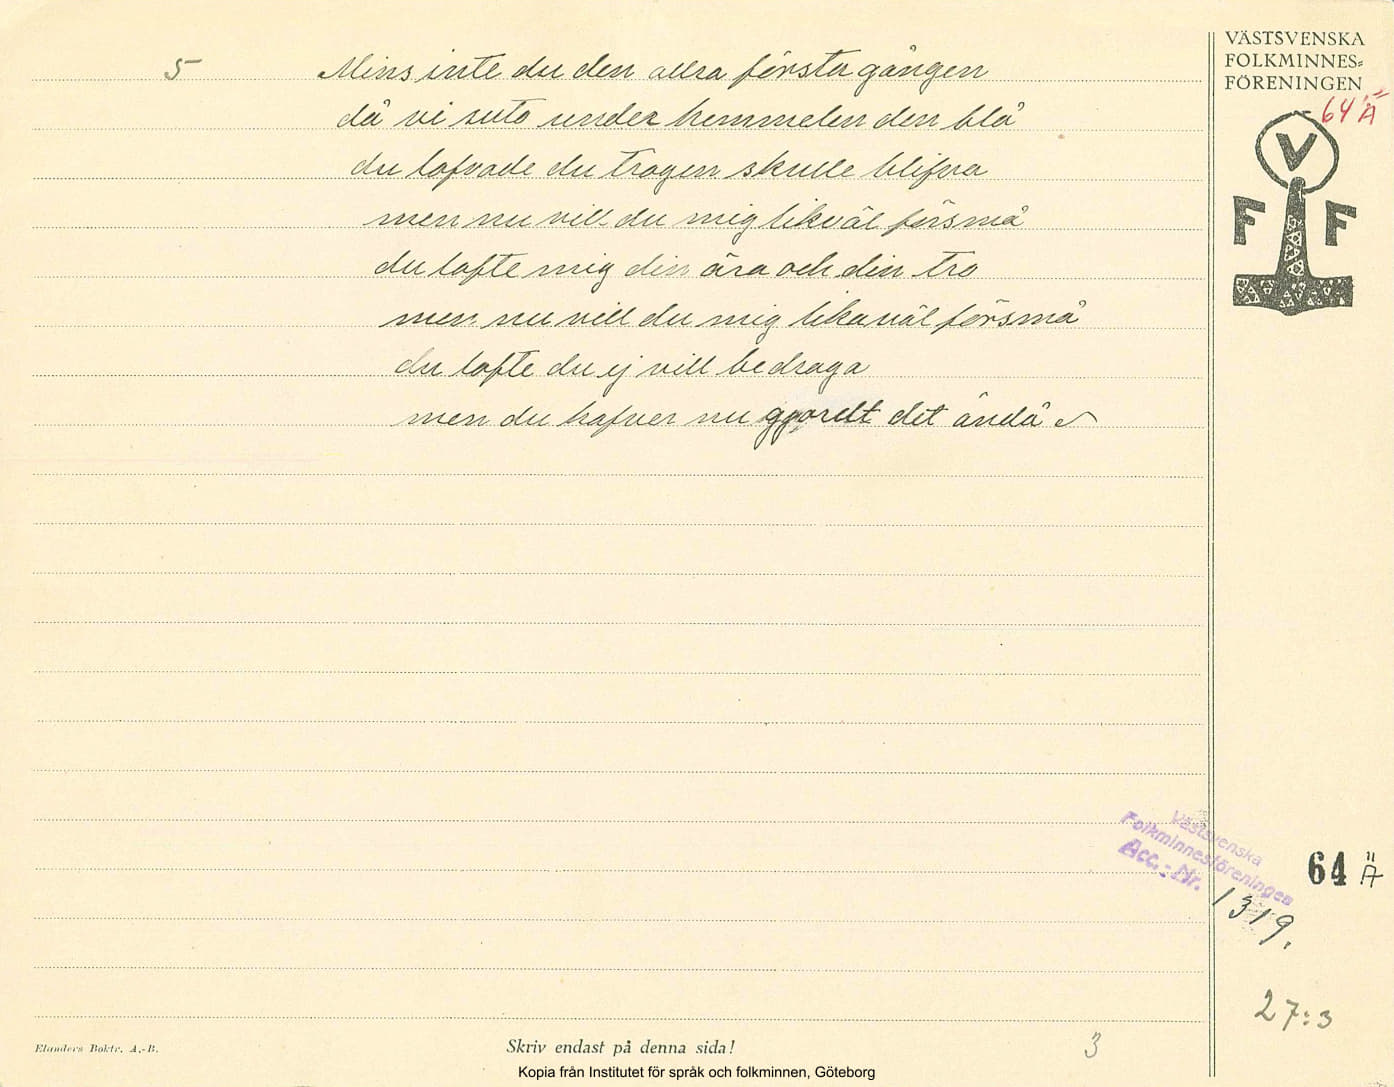 VÄSTSVENSKA
FOLKMINNES=
FÖRENINGEN
64 Ä
V
F F
5
Mins inte du den allra första gången
då vi suto under hemmelen den blå
du lofvade du trogen skulle blifva
men nu vill du mig likväl försmå
du lofte mig din ära och din tro
men nu vill du mig likaväl försmå
du lofte du ej vill bedraga
men du hafver nu gjordt det ändå
Västsvenska
Folkminnesföreningen
Acc.-Nr. 1319.
64 Ä
27:3
3
Elanders Boktr. A.-B.
Skriv endast på denna sida!
Kopia från Institutet för språk och folkminnen, Göteborg